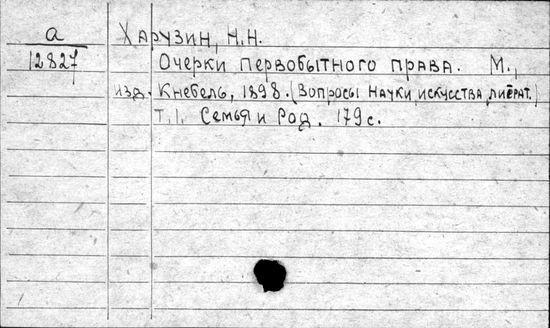 а Харузин, Н.Н.
12827 Очерки первобытного права. М.,
изд. Кнебель, 1898. (Вопросы науки, искусства, литерат.)
Т.1. Семья и Род. 179 с.